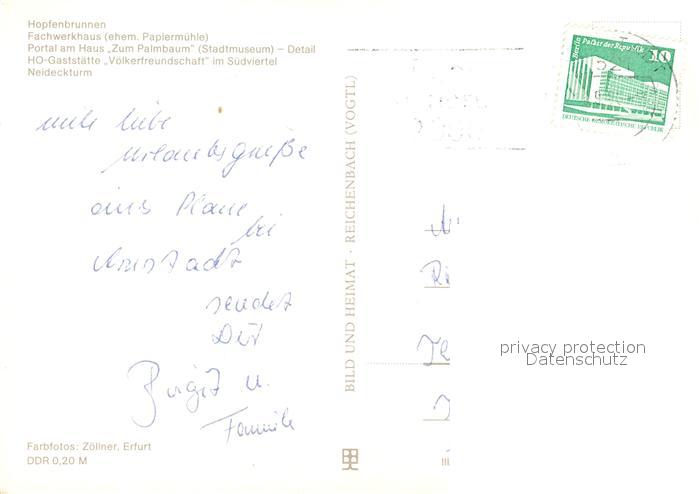 Hopfenbrunnen
Fachwerkhaus (ehem. Papiermühle)
Portal am Haus „Zum Palmbaum" (Stadtmuseum) — Detail
HO-Gaststätte „Völkerfreundschaft" im Südviertel
Neideckturm
liebe
Urlaubsgrüße
aus Plaue
bei
Arnstadt
sendet
Dir
Birgit u.
Familie
Farbfotos: Zöllner, Erfurt
DDR 0,20 M
BILD UND HEIMAT · REICHENBACH (VOGTL)
Berlin Palast der Republik 10
DEUTSCHE DEMOKRATISCHE REPUBLIK
privacy protection
Datenschutz